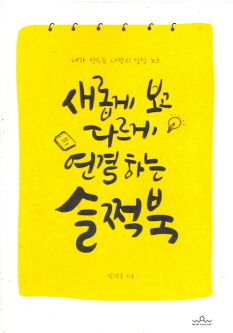 내가 만드는 나만의 발상 노트
새롭게 보고
다르게
연결하는
슬쩍북